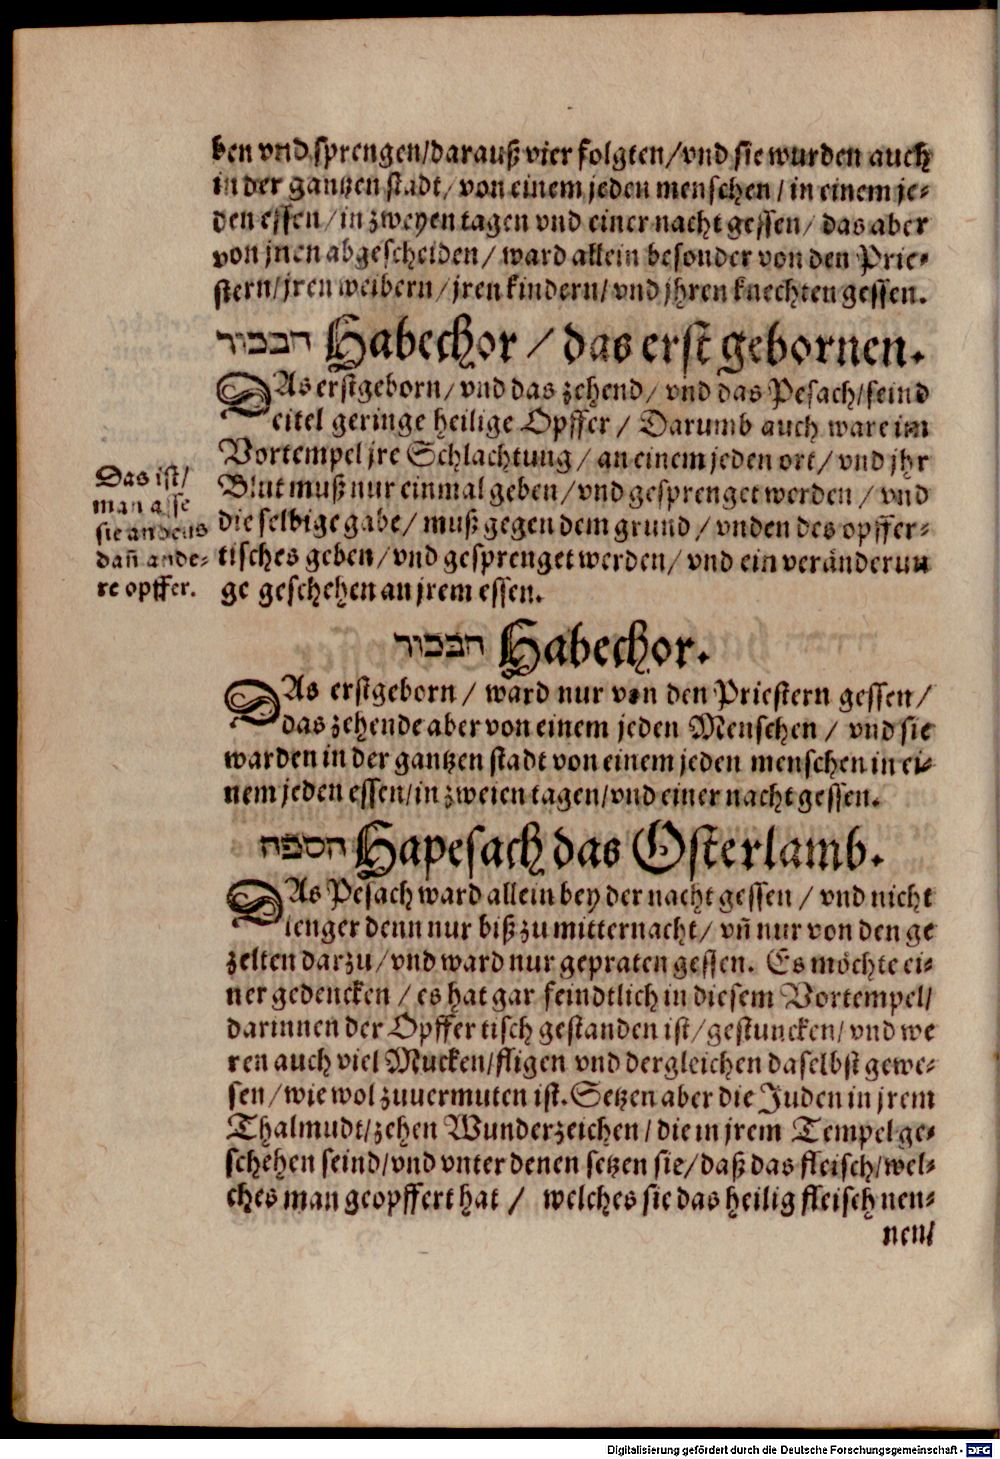 ben vnd sprengen/darauß vier folgten/vnd sie wurden auch
in der gantzen stadt/ von einem jeden menschen / in einem je-
den essen / in zweyen tagen vnd einer nacht gessen/ das aber
von jnen abgescheiden / ward allein besonder von den Prie-
stern/jren weibern/ jren kindern/ vnd jhren knechten gessen.
הבכור Habechor / das erst gebornen.
DAs erstgeborn/ vnd das zehend/ vnd das Pesach/seind
eitel geringe heilige Opffer / Darumb auch ware im
Vortempel jre Schlachtung / an einem jeden ort/ vnd jhr
Blut muß nur einmal geben / vnd gesprenget werden / vnd
die selbige gabe/ muß gegen dem grund / vnden des opffer-
tisches geben/ vnd gesprenget werden/ vnd ein veränderun
ge geschehen an jrem essen.
Das ist/
man asse
sie anders
dañ ande-
re opffer.
הבכור Habechor.
DAs erstgeborn / ward nur von den Priestern gessen/
das zehende aber von einem jeden Menschen / vnd sie
warden in der gantzen stadt von einem jeden menschen in ei-
nem jeden essen/in zweien tagen/vnd einer nacht gessen.
הספח Hapesach das Osterlamb.
DAs Pesach ward allein bey der nacht gessen / vnd nicht
lenger denn nur biß zu mitternacht/ vñ nur von den ge
zelten darzu/vnd ward nur gepraten gessen. Es möchte ei-
ner gedencken / es hat gar feindtlich in diesem Vortempel/
darinnen der Opffer tisch gestanden ist/gestuncken/ vnd we
ren auch viel Mucken/fligen vnd dergleichen daselbst gewe-
sen/wie wol zuuermuten ist. Setzen aber die Juden in jrem
Thalmudt/zehen Wunderzeichen/die in jrem Tempel ge-
schehen seind/vnd vnter denen setzen sie/daß das fleisch/wel-
ches man geopffert hat / welches sie das heilig fleisch nen-
nen/
Digitalisierung gefördert durch die Deutsche Forschungsgemeinschaft - DFG